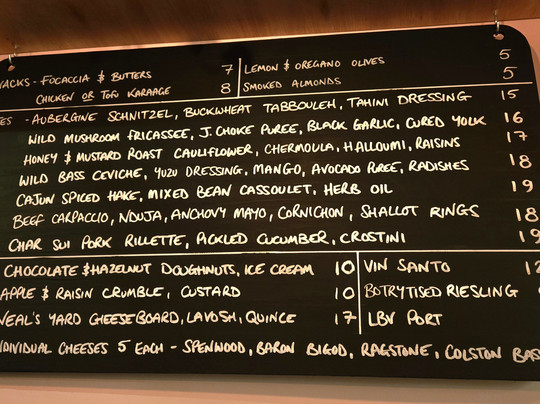 NACKS - FOCACCIA & BUTTERS 7
CHICKEN OR TOFU KARAAGE 8
LEMON & OREGANO OLIVES 5
SMOKED ALMONDS 5
ES - AUBERGINE SCHNITZEL, BUCKWHEAT TABBOULEH, TAHINI DRESSING 15
WILD MUSHROOM FRICASSEE, J.CHOKE PUREE, BLACK GARLIC, CURED YOLK 16
HONEY & MUSTARD ROAST CAULIFLOWER, CHERMOULA, HALLOUMI, RAISINS 17
WILD BASS CEVICHE, YUZU DRESSING, MANGO, AVOCADO PUREE, RADISHES 18
CAJUN SPICED HAKE, MIXED BEAN CASSOULET, HERB OIL 19
BEEF CARPACCIO, NDUJA, ANCHOVY MAYO, CORNICHON, SHALLOT RINGS 18
CHAR SUI PORK RILLETTE, PICKLED CUCUMBER, CROSTINI 19
CHOCOLATE & HAZELNUT DOUGHNUTS, ICE CREAM 10
APPLE & RAISIN CRUMBLE, CUSTARD 10
NEAL'S YARD CHEESEBOARD, LAVOSH, QUINCE 17
VIN SANTO
BOTRYTISED RIESLING
LBV PORT
NDIVIDUAL CHEESES 5 EACH - SPENWOOD, BARON BIGOD, RAGSTONE, COLSTON BAS